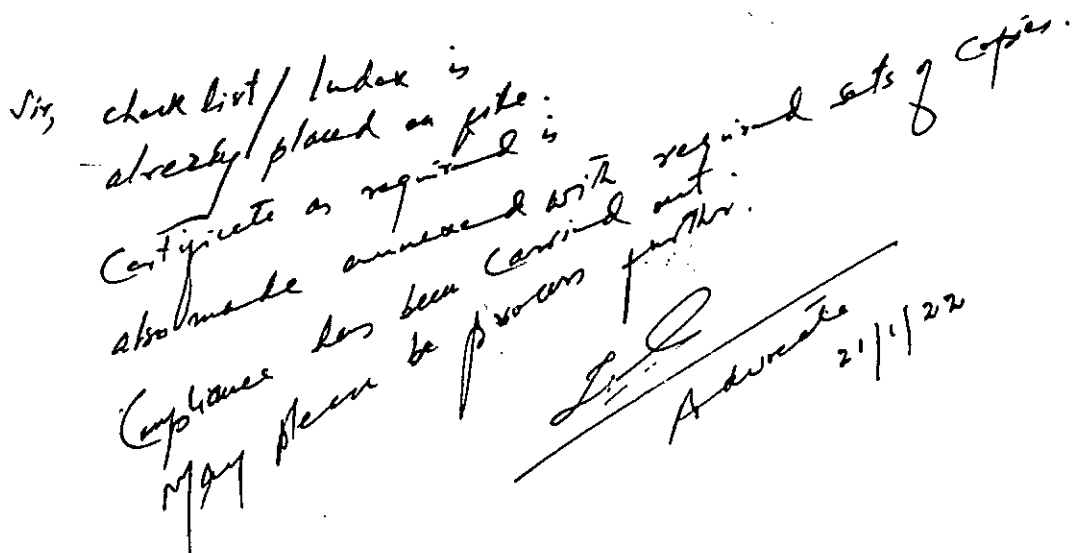 Sir, check list/Index is
already placed on file.
Certificate as required is
also made annexed with required sets of copies.
Compliance has been carried out.
May please be process further.
Advocate
21/1/22